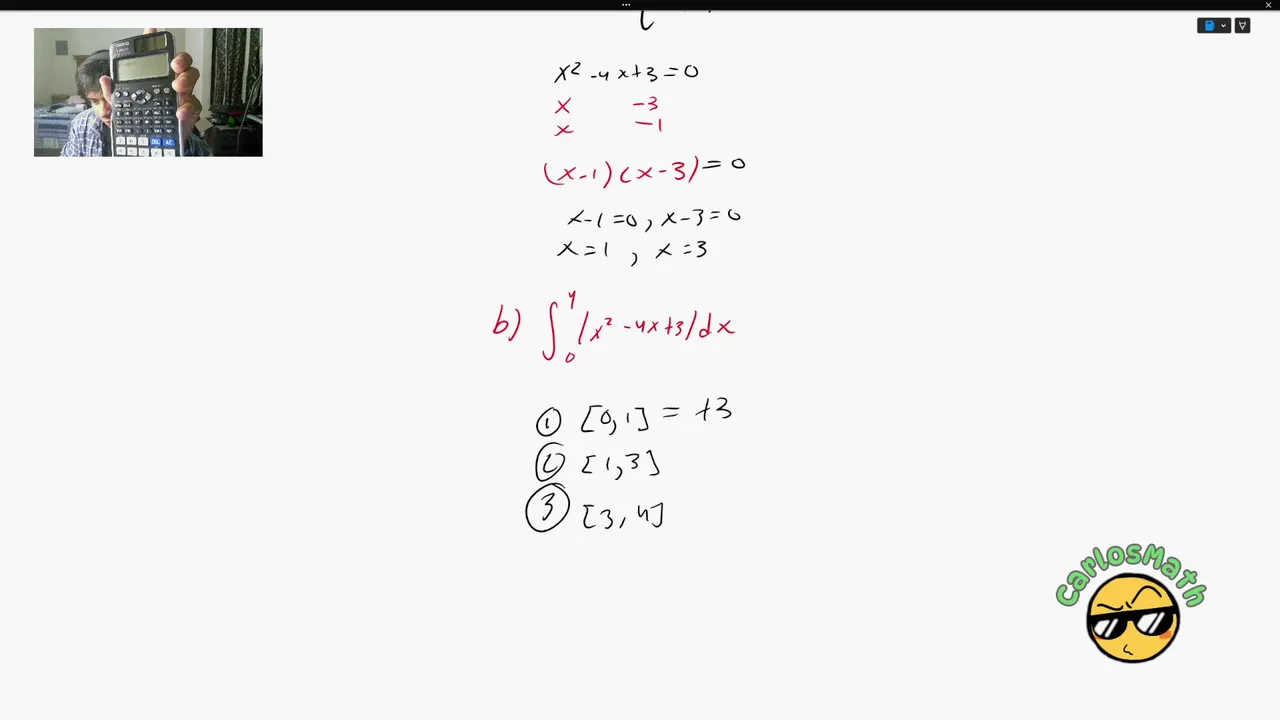 x² -4x+3=0
x -3
x -1
(x-1)(x-3)=0
x-1=0, x-3=0
x=1, x=3
b) ∫₀⁴ |x² -4x+3|dx
① [0,1] = +3
② [1,3]
③ [3,4]
CarlosMath